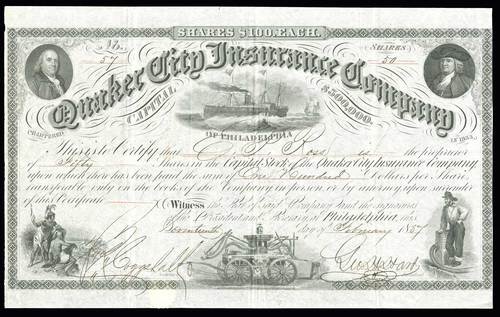 SHARES $100. EACH.
No. 57 SHARES 50
Quaker City Insurance Company
CAPITAL $500,000.
CHARTERED OF PHILADELPHIA IN 1853
This is to Certify that Ross is the proprietor
of Fifty Shares in the Capital Stock of the Quaker City Insurance Company
upon which there has been paid the sum of One Hundred Dollars per Share,
transferable only on the books of the Company in person or by attorney upon surrender
of this Certificate. Witness the Seal of said Company and the signature
of the President and Secretary at Philadelphia, this
Seventeenth day of February 1857
Coggshall Geo. H. Hart